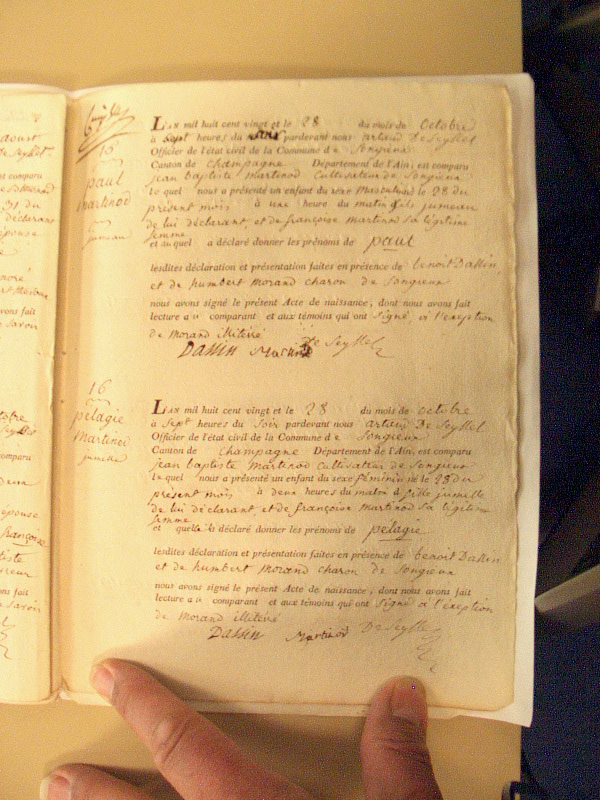 15
paul
martinod
jumeau
L'AN mil huit cent vingt et le 28 du mois de octobre
à sept heures du pardevant nous artaud De Seyssel
Officier de l'état civil de la Commune de Songieux
Canton de Champagne Département de l'Ain, est comparu
jean baptiste martinod Cultivateur de Songieux
lequel nous a présenté un enfant du sexe Masculin né le 28 du
présent mois à une heure du matin fils jumeau
de lui déclarant, et de françoise martinod sa légitime
femme
et auquel a déclaré donner les prénoms de paul
lesdites déclaration et présentation faites en présence de benoit Dassin
et de humbert morand charon de Songieux
nous avons signé le présent Acte de naissance, dont nous avons fait
lecture au comparant et aux témoins qui ont signé, à l'exeption
de morand illitéré
Dassin Martinod De Seyssel
16
pelagie
martinod
jumelle
L'AN mil huit cent vingt et le 28 du mois de octobre
à sept heures du soir pardevant nous artaud De Seyssel
Officier de l'état civil de la Commune de Songieux
Canton de Champagne Département de l'Ain, est comparu
jean baptiste martinod Cultivateur de Songieux
lequel nous a présenté un enfant du sexe féminin né le 28 du
présent mois à deux heures du matin fille jumelle
de lui déclarant, et de françoise martinod sa légitime
femme
et quelle a déclaré donner les prénoms de pelagie
lesdites déclaration et présentation faites en présence de benoit Dassin
et de humbert morand charon de Songieux
nous avons signé le présent Acte de naissance, dont nous avons fait
lecture au comparant et aux témoins qui ont signé à l'exeption
de morand illitéré
Dassin Martinod De Seyssel